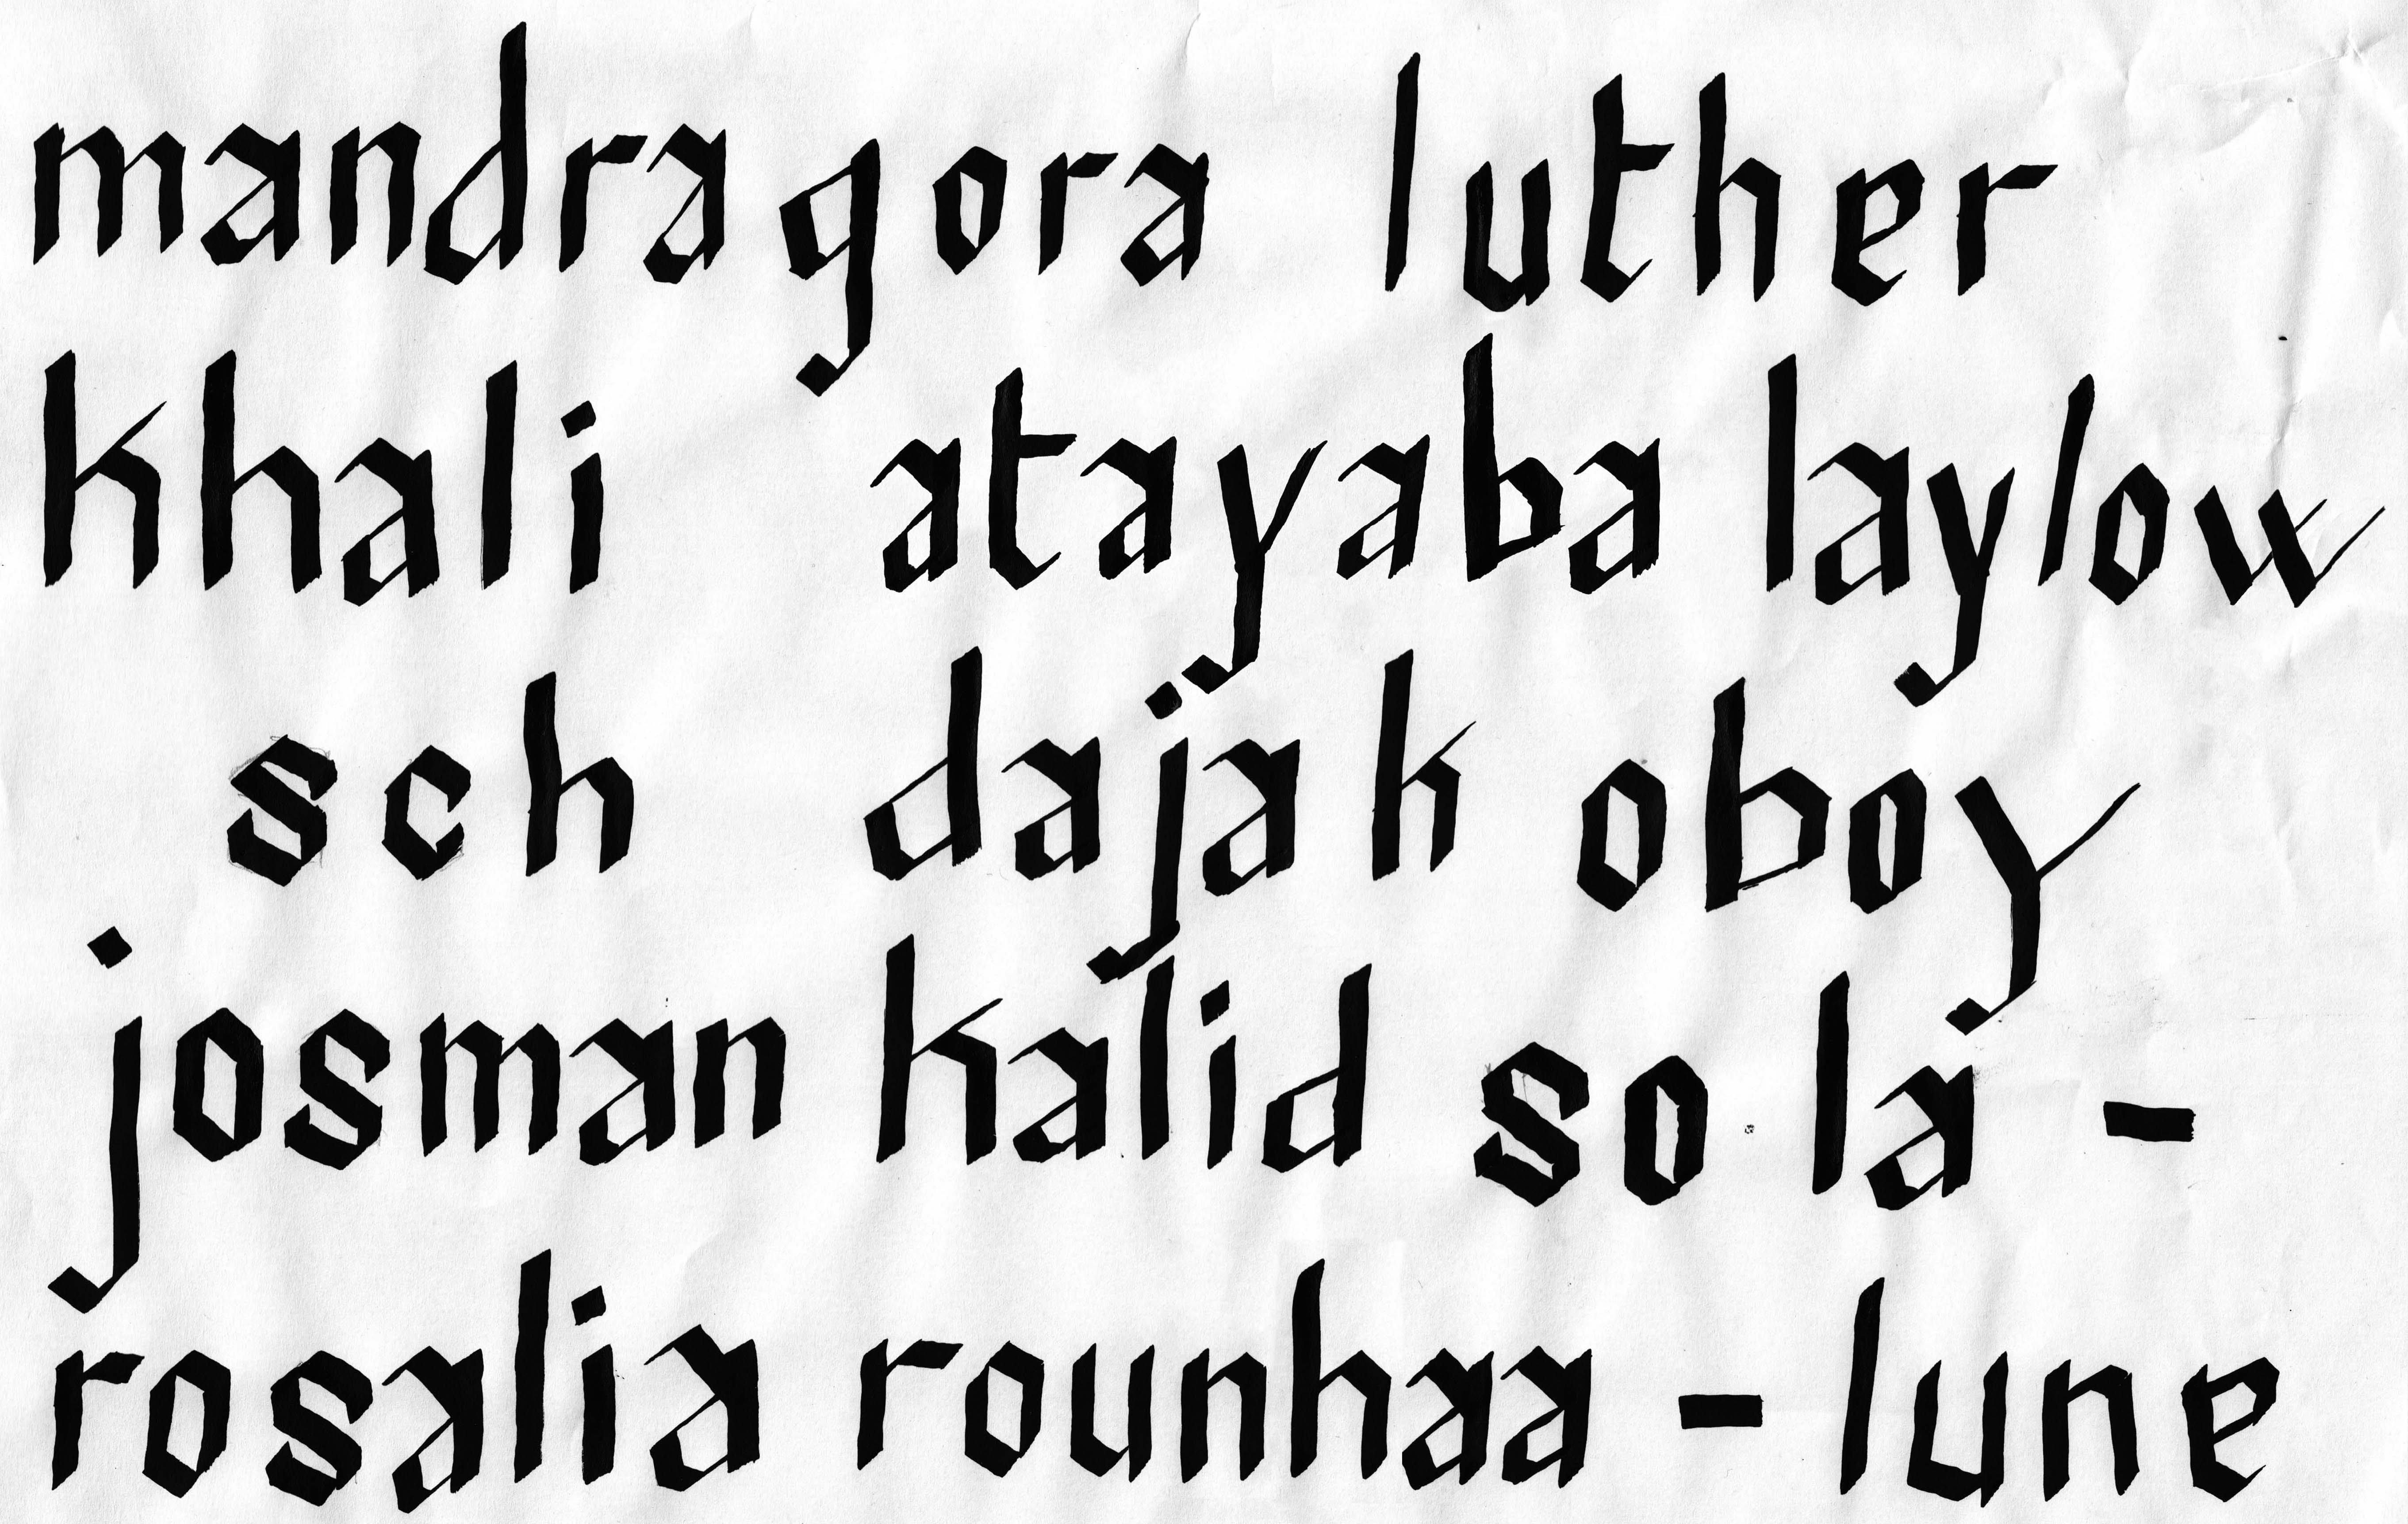 mandragora luther
khali atayaba laylow
sch dajak oboy
josman kalid so la -
rosalia rounhaa - lune